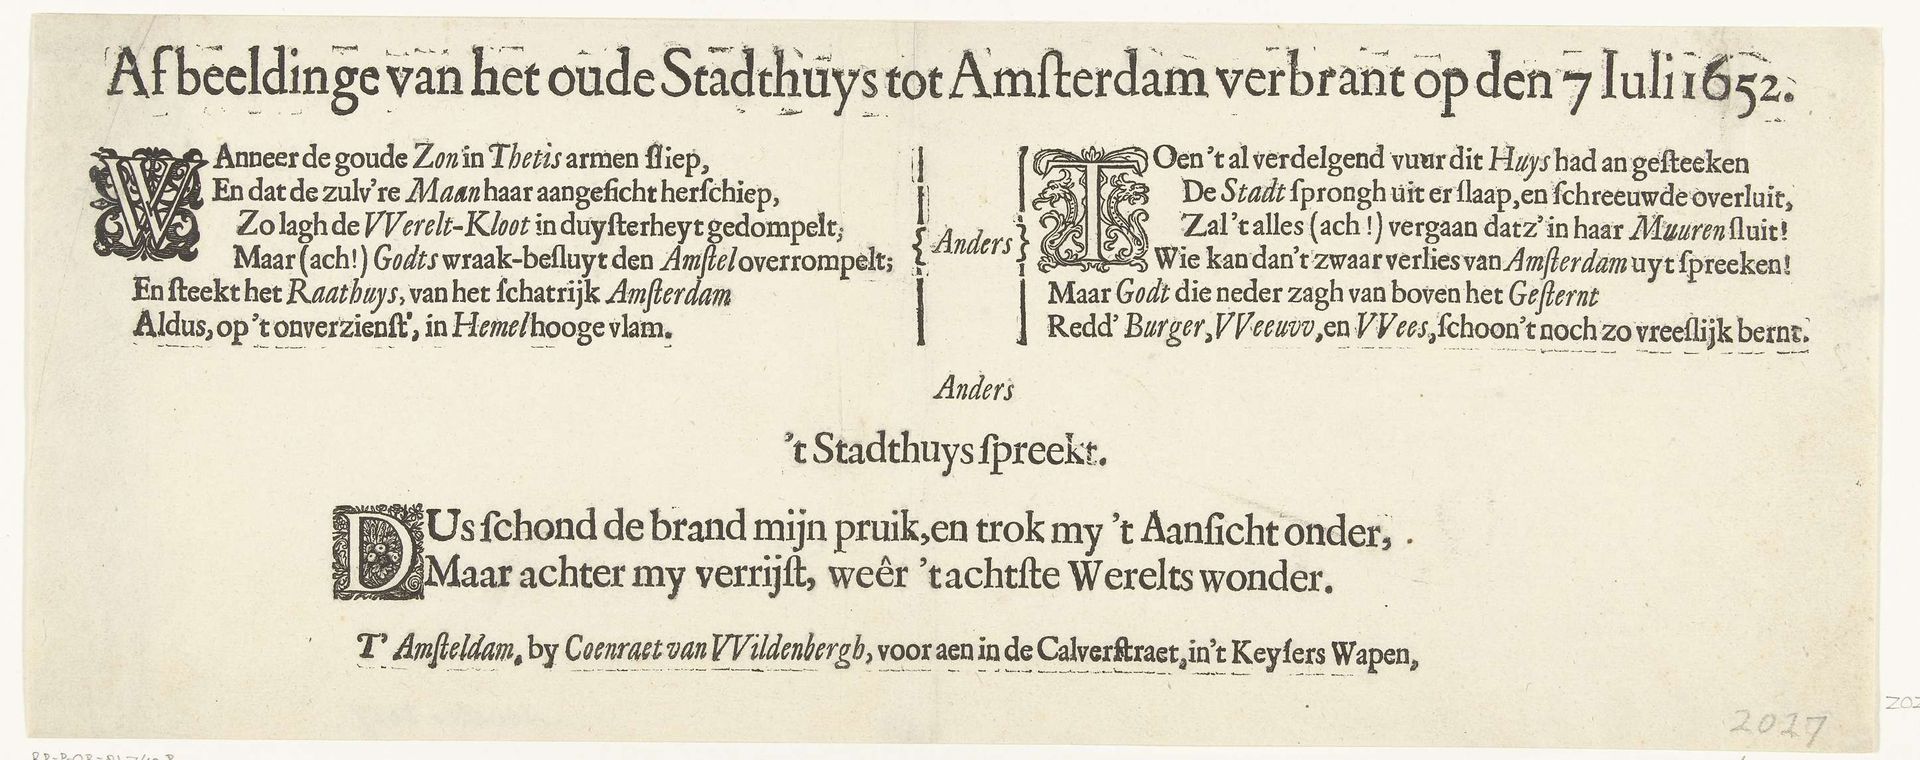 Afbeeldinge van het oude Stadthuys tot Amſterdam verbrant op den 7 Iuli 1652.
WAnneer de goude Zon in Thetis armen ſliep,
En dat de zulv're Maan haar aangeſicht herſchiep,
Zo lagh de VVerelt-Kloot in duyſterheyt gedompelt;
Maar (ach!) Godts wraak-beſluyt den Amſtel overrompelt;
En ſteekt het Raathuys, van het ſchatrijk Amſterdam
Aldus, op 't onverzienſt', in Hemel hooge vlam.
Anders
TOen 't al verdelgend vuur dit Huys had angeſteeken
De Stadt ſprongh uit er ſlaap, en ſchreeuwde overluit,
Zal 't alles (ach!) vergaan datz' in haar Muuren ſluit!
Wie kan dan't zwaar verlies van Amſterdam uytſpreeken!
Maar Godt die neder zagh van boven het Geſternt
Redd' Burger, VVeeuvv, en VVees, ſchoon't noch zo vreeſlijk bernt.
Anders
't Stadthuys ſpreekt.
DUs ſchond de brand mijn pruik, en trok my 't Aanſicht onder,
Maar achter my verrijſt, weêr 't achtſte Werelts wonder.
T' Amſteldam, by Coenraet van VVildenbergh, voor aen in de Calverſtraet, in't Keyſers Wapen,
2027